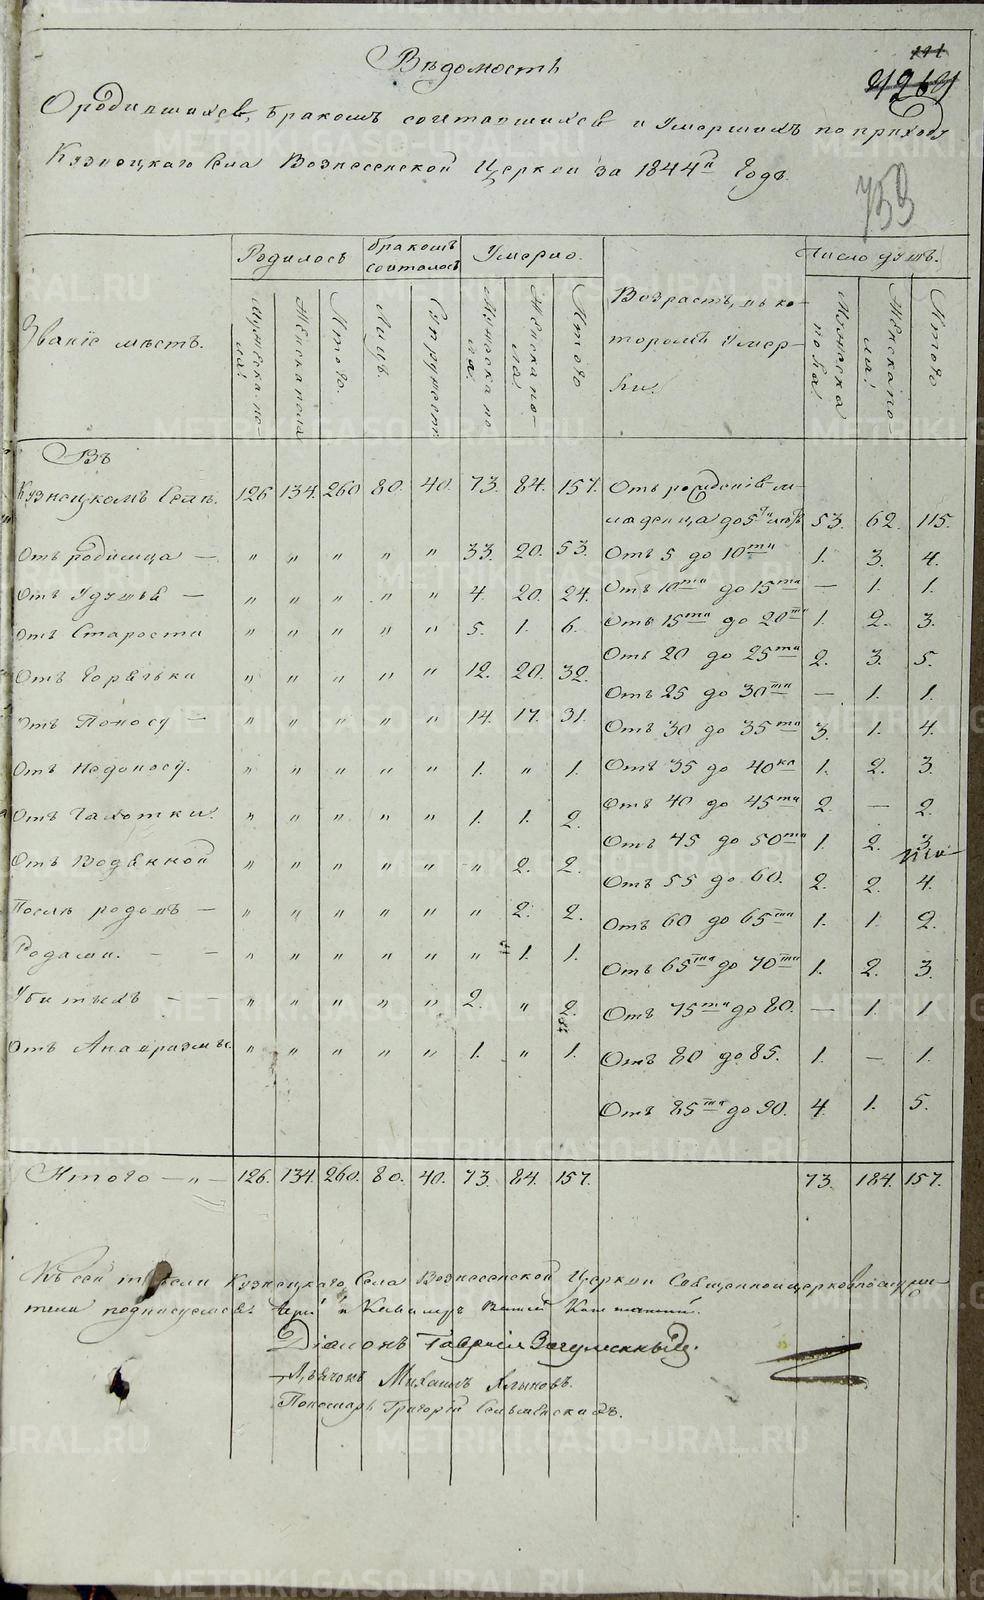 Вѣдомость
О родившихся, бракомъ сочитавшихся и Умершихъ по приходу
Кузнецкаго Села Вознесенской Церкви за 1844й Годъ.
759
Званіе мѣстъ. Родилось бракомъ сочиталось Умерло. Возрастъ, въ которомъ Умерли. Число душъ.
Мужеска пола. Женска пола Итого. Лицъ. Супружествъ Мужеска пола Женска пола Итого Мужеска пола Женска пола. Итого
Въ
Кузнецкомъ Селѣ. 126 134. 260 80. 40. 73. 84. 157. Отъ рожденія младенца до 5ти лѣтъ 53. 62. 115.
Отъ родимца — " " " " " 33. 20. 53. Отъ 5 до 10ти 1. 3. 4.
Отъ Удушья — " " " " " 4. 20. 24. Отъ 10ти до 15ти — 1. 1.
Отъ Старости " " " " " 5. 1. 6. Отъ 15ти до 20ти 1. 2. 3.
Отъ Горячки " " " " " 12. 20. 32. Отъ 20 до 25ти 2. 3. 5.
Отъ 25 до 30ти — 1. 1.
Отъ Поносу — " " " " " 14. 17. 31. Отъ 30 до 35ти 3. 1. 4.
Отъ Недоносу. " " " " " 1. " 1. Отъ 35 до 40ка 1. 2. 3.
Отъ Чахотки. " " " " " 1. 1. 2. Отъ 40 до 45ти 2. — 2.
Отъ 45 до 50ти 1. 2. 3
Отъ Водяной " " " " " " 2. 2. Отъ 55 до 60. 2. 2. 4.
Послѣ родовъ — " " " " " " 2. 2. Отъ 60 до 65ти 1. 1. 2.
Родами. — — " " " " " " 1. 1. Отъ 65ти до 70ти 1. 2. 3.
Убитыхъ — — " " " " " 2. " 2. Отъ 75ти до 80. — 1. 1
Отъ " " " " " 1. " 1. Отъ 80 до 85. 1. — 1.
Отъ 85ти до 90. 4. 1. 5.
Итого — " — 126. 134. 260. 80. 40. 73. 84. 157. 73. 184. 157.
Къ сей Кузнецкаго Села Вознесенской Церкви Священноцерковнослужители подписуемся:
Діаконъ Гавриилъ
Дьячокъ Михаилъ
Пономарь Григорій
METRIKI.GASO-URAL.RU